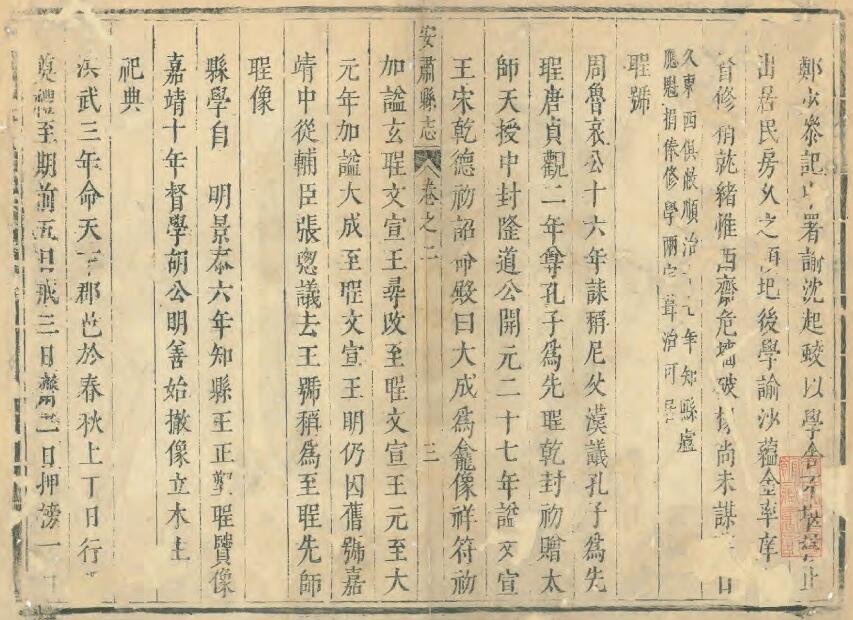 鄭 泰記 署諭沈起蛟以學舍 
出居民房久之 圮後學諭沙蘊金率庠
首修稍就緒惟西齋危墻破 尚未謀 日
久東西俱敝順治 元年知縣盧
應魁捐俸修學兩 葺治可居
聖號
周魯哀公十六年誄稱尼父漢議孔子爲先
聖唐貞觀二年尊孔子爲先聖乾封初贈太
師天授中封隆道公開元二十七年謚文宣
安肅縣志 卷之二 三
王宋乾德初詔命殿曰大成爲龕像祥符初
加謚玄聖文宣王尋改至聖文宣王元至大
元年加謚大成至聖文宣王明仍因舊號嘉
靖中從輔臣張璁議去王號稱爲至聖先師
聖像
縣學自 明景泰六年知縣王正塑聖賢像
嘉靖十年督學胡公明善始撤像立木主
祀典
洪武三年命天下郡邑於春秋上丁日行
奠禮至期前五日戒三日齋二日押榜一日